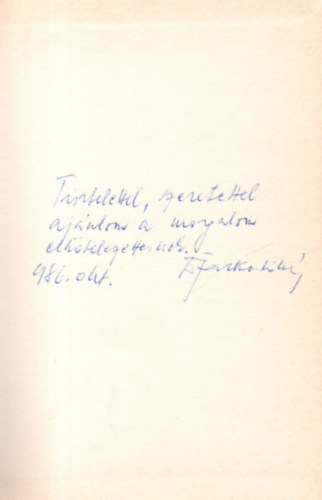 Tisztelettel, szeretettel
ajánlom a mozgalom
elkötelezettjeinek.
986. okt.